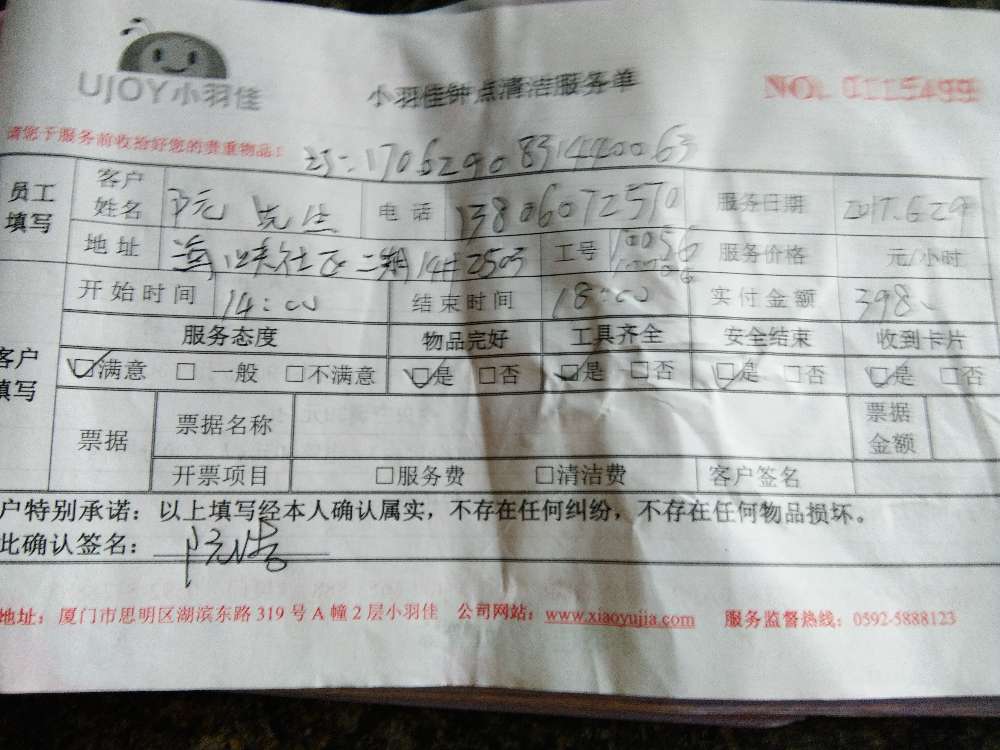 UJOY小羽佳
小羽佳钟点清洁服务单
NO: 0115499
请您于服务前收拾好您的贵重物品!
1706290831440063
员工填写 客户姓名 阮先生 电话 13806072570 服务日期 2017.6.29
地址 社区二期14#2503 工号 服务价格 元/小时
开始时间 14:00 结束时间 18:00 实付金额 398
客户填写 服务态度 物品完好 工具齐全 安全结束 收到卡片
☑满意 □ 一般 □不满意 ☑是 □否 ☑是 □否 ☑是 □否 ☑是 □否
票据 票据名称 票据金额
开票项目 □服务费 □清洁费 客户签名
户特别承诺:以上填写经本人确认属实,不存在任何纠纷,不存在任何物品损坏。
此确认签名:
地址:厦门市思明区湖滨东路 319 号 A 幢 2 层小羽佳 公司网站:www.xiaoyujia.com 服务监督热线:0592-5888123